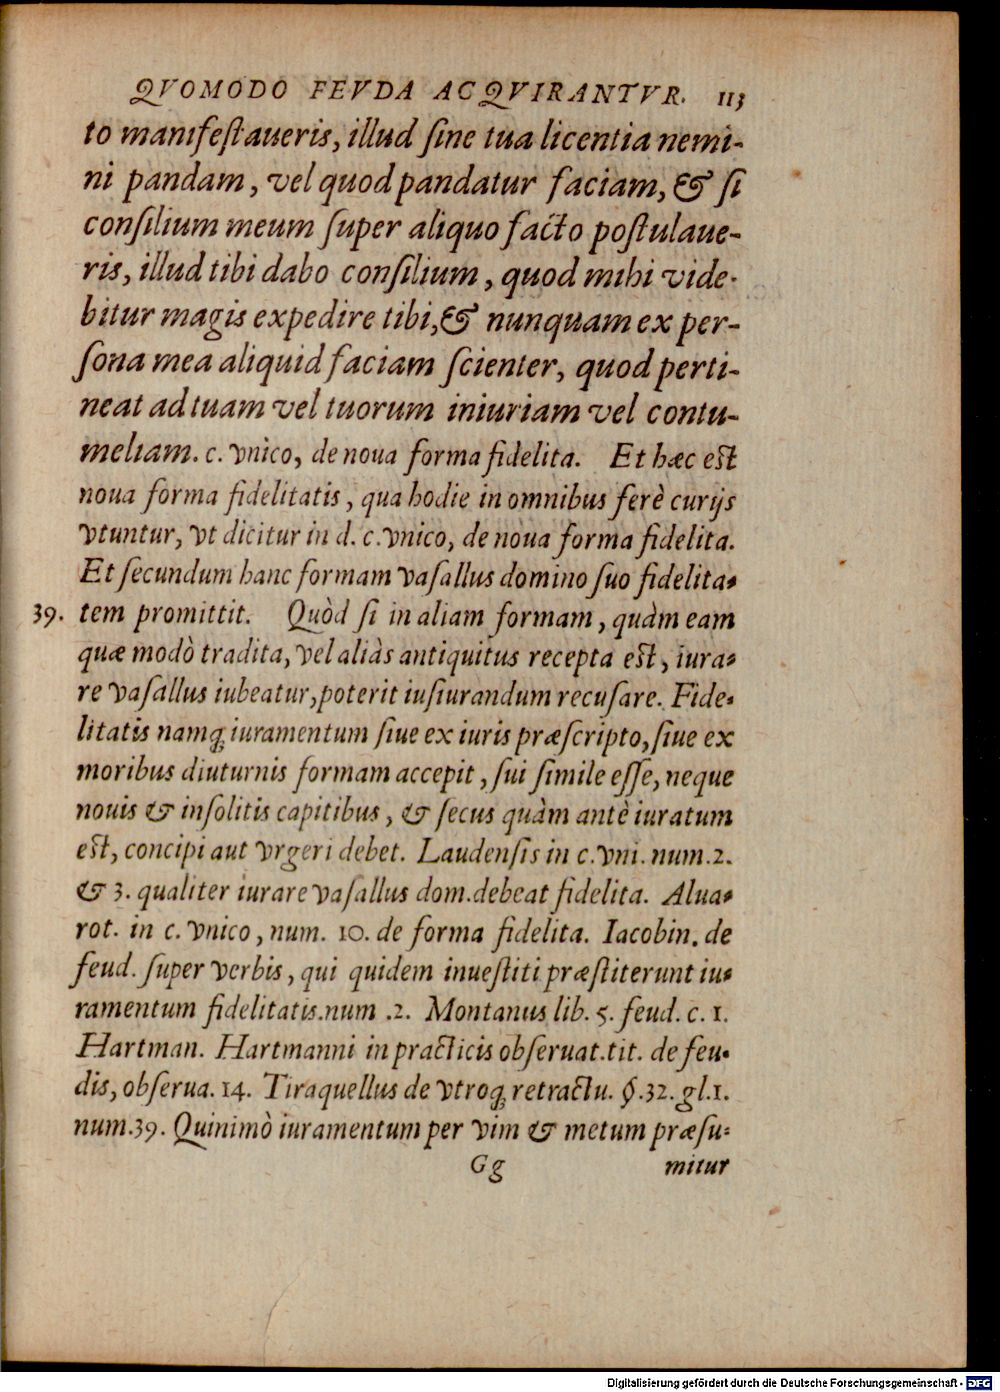 QVOMODO FEVDA ACQVIRANTVR. 113
to manifeſtaueris, illud ſine tua licentia nemi-
ni pandam, vel quod pandatur faciam, & ſi
conſilium meum ſuper aliquo facto poſtulaue-
ris, illud tibi dabo conſilium, quod mihi vide-
bitur magis expedire tibi, & nunquam ex per-
ſona mea aliquid faciam ſcienter, quod perti-
neat ad tuam vel tuorum iniuriam vel contu-
meliam. c. vnico, de noua forma fidelita. Et hæc est
noua forma fidelitatis, qua hodie in omnibus ferè curijs
vtuntur, vt dicitur in d. c. vnico, de noua forma fidelita.
Et ſecundum hanc formam vaſallus domino ſuo fidelita-
39. tem promittit. Quòd ſi in aliam formam, quàm eam
quæ modò tradita, vel aliàs antiquitus recepta est, iura-
re vaſallus iubeatur, poterit iuſiurandum recuſare. Fide-
litatis namq; iuramentum ſiue ex iuris præſcripto, ſiue ex
moribus diuturnis formam accepit, ſui ſimile eſſe, neque
nouis & inſolitis capitibus, & ſecus quàm antè iuratum
est, concipi aut vrgeri debet. Laudenſis in c. vni. num. 2.
& 3. qualiter iurare vaſallus dom. debeat fidelita. Alua-
rot. in c. vnico, num. 10. de forma fidelita. Iacobin. de
feud. ſuper verbis, qui quidem inueſtiti præſtiterunt iu-
ramentum fidelitatis. num .2. Montanus lib. 5. feud. c. 1.
Hartman. Hartmanni in practicis obſeruat. tit. de feu-
dis, obſerua. 14. Tiraquellus de vtroq; retractu. §. 32. gl. 1.
num. 39. Quinimò iuramentum per vim & metum præſu-
Gg mitur
Digitalisierung gefördert durch die Deutsche Forschungsgemeinschaft - DFG